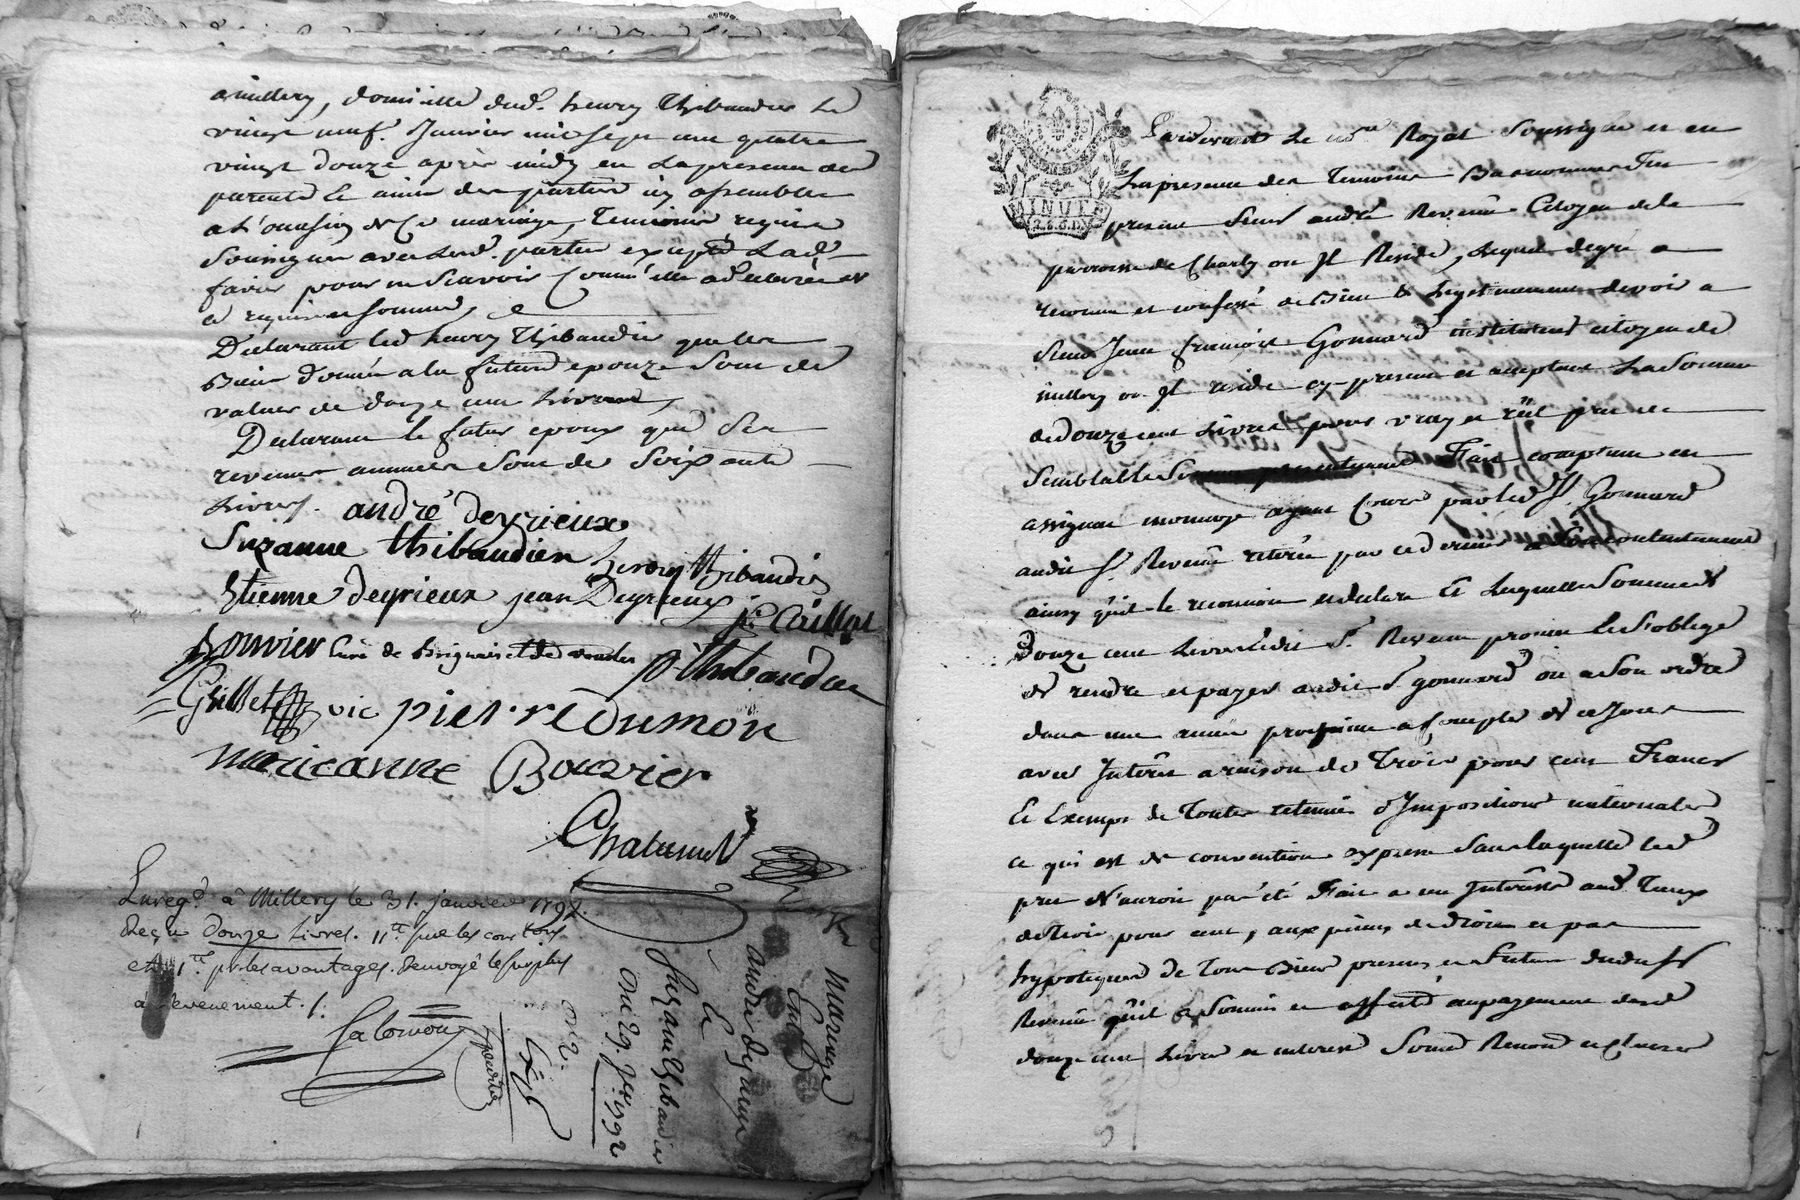 amillery, domicille dud. henry Thibaudier Le
vingt neuf. Janvier mil sept cent quatre
vingt douze après midy en La presence des
parents & amis des parties icy assemblés
a L'occasion de Ce mariage, Temoins requis
soussignés avec Lesd. parties excepté Lad.
favier pour ne scavoir Comm'elle a déclaré de
ce requise et sommée,
Declarant led henry Thibaudier que les
Biens donnés a la future epouze sont de
valeur de douze cent Livres,
Declarant le futur epoux que ses
revenus annuels sont de soixante
Livres.
andré deyrieux
Suzanne thibaudier henry thibaudier
Etienne deyrieux jean Deyrieux
Bouvier Curé de Brignais et de
p. thibaudier
Grillet vic pierre Dumon
marieanne Bouvier
Enregé. à Millery le 31. janvier 1792.
Reçu douze Livres. 11.tt sur les
et 1.tt pr. les avantages. Renvoyé le surplus
à l'evenement ./.
Salomon
Mariage
Entre
andré deyrieux
&
Suzanne thibaudier
Du 29. Jer 1792
Expédiée
Pardevant Le nore Royal soussigné et en
La presence des Temoins Bas nommés Fut
present sieur andré Revenu Citoyen de la
parroisse de Charly ou Il Reside, Lequel de gré a
reconnu et confessé de Bien & Legitimement devoir a
sieur Jean françois Gonnard instituteur citoyen de
millery ou Il reside cy-present et acceptant La Somme
de douze cent Livres pour vray et réel prest
semblable Fait comptant en
assignat monnoye ayant Cours par led Sr. Gonnard
audit Sr. Revenu retirée par ce dernier a Son contentement
ainsy qu'il le reconnoit et declare & Laquelle Somme de
Douze cent Livres Ledit Sr. Revenu promet & s'oblige
de rendre et payer audit Sr gonnard ou a Son ordre
dans une année prochaine a Compter de ce Jour
avec Interêt a raison de Trois pour cent Francs
& Exempt de Toutes retenues d'Impositions nationales
ce qui est de convention expresse Sans laquelle led
prest N'auroit pas été Fait a un Interêst aud. Taux
de Trois pour cent, aux peines de Droit et par
hypoteque de Tous Biens presens et futurs dudit Sr
Revenu qu'il a Soumis et affecté au payement desd
douze cent Livres et interest Soumis Renoncé et Clauses